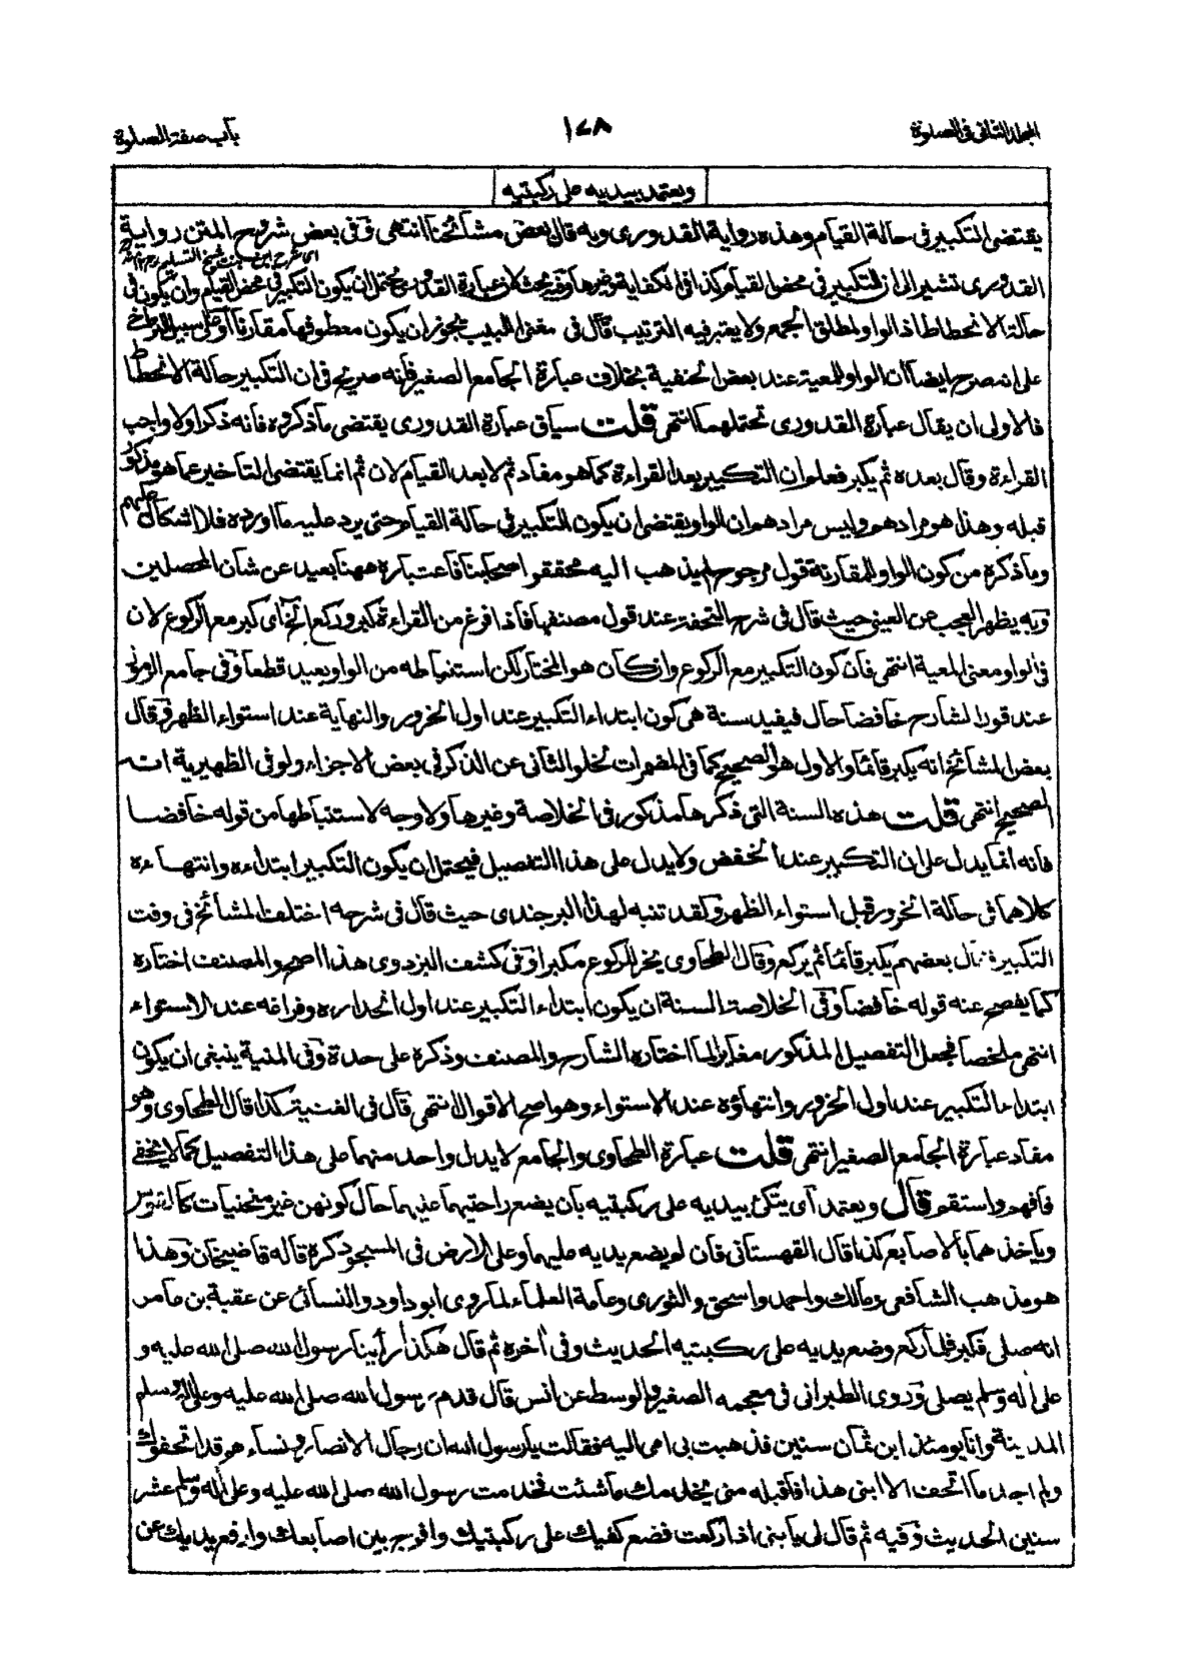 المجلد الثانى فى الصلوة
١٤٨
باب صفة الصلوة
ويعتمد بيديه على ركبتيه
يقتضى التكبير فى حالة القيام وهذه رواية القدورى وبه قال بعض مشائخنا انتهى وفى بعض شروح المتن رواية
القدورى تشير الى ان التكبير فى محض القيام كذا فى الكفاية وغيرها وفيه بحث لان عبارة القدورى يحتمل ان يكون التكبير فى محض القيام وان يكون فى
حالة الانحطاط اذ الواو لمطلق الجمع ولا يعتبر فيه الترتيب قال فى مغنى اللبيب يجوز ان يكون معطوفها مقارنا او على سبيل التراخى
على انه صرح ايضا ان الواو للمعية عند بعض الحنفية بخلاف عبارة الجامع الصغير فانه صريح فى ان التكبير حالة الانحطاط
فالاولى ان يقال عبارة القدورى تحتملهما انتهى قلت سياق عبارة القدورى يقتضى ما ذكروه فانه ذكر اولا واجب
القراءة وقال بعده ثم يكبر فعلم ان التكبير بعد القراءة كما هو مفاد ثم لا بعد القيام لان ثم انما يقتضى التاخير عما هو مذكور
قبله وهذا هو مرادهم وليس مرادهم ان الواو يقتضى ان يكون التكبير فى حالة القيام حتى يرد عليه ما اورده فلا اشكال عليهم
وما ذكره من كون الواو للمقارنة قول مرجوح لم يذهب اليه محققو اصحابنا فاعتباره ههنا بعيد عن شان المحصلين
وبه يظهر العجب عن العينى حيث قال فى شرح التحفة عند قول مصنفها فاذا فرغ من القراءة كبر وركع الخ اى كبر مع الركوع لان
فى الواو معنى المعية انتهى فان كون التكبير مع الركوع وان كان هو المختار لكن استنباطه من الواو بعيد قطعا وفى جامع الرموز
عند قول الشارح خافضا حال فيفيد سنة هى كون ابتداء التكبير عند اول الخرور والنهاية عند استواء الظهر وقال
بعض المشائخ انه يكبر قائما والاول هو الصحيح كما فى المضمرات لخلو الثانى عن الذكر فى بعض الاجزاء ولو فى الظهيرية انه
الصحيح انتهى قلت هذه السنة التى ذكرها مذكور فى الخلاصة وغيرها ولا وجه لاستنباطها من قوله خافضا
فانه انما يدل على ان التكبير عند الخفض ولا يدل على هذا التفصيل فيحتمل ان يكون التكبير ابتداءه وانتهاءه
كلاهما فى حالة الخرور قبل استواء الظهر ولقد تنبه لهذا البرجندى حيث قال فى شرحه اختلف المشائخ فى وقت
التكبير فقال بعضهم يكبر قائما ثم يركع وقال الطحاوى يخر للركوع مكبرا وفى كشف البزدوى هذا اصح والمصنف اختاره
كما يفصح عنه قوله خافضا وفى الخلاصة السنة ان يكون ابتداء التكبير عند اول انحداره وفراغه عند الاستواء
انتهى ملخصا فجعل التفصيل المذكور مغايرا لما اختاره الشارح والمصنف وذكره على حدة وفى المنية ينبغى ان يكون
ابتداء التكبير عند اول الخرور وانتهاؤه عند الاستواء وهو اصح الاقوال انتهى قال فى الغنية كذا قال الطحاوى وهو
مفاد عبارة الجامع الصغير انتهى قلت عبارة الطحاوى والجامع لا يدل واحد منهما على هذا التفصيل كما لا يخفى
فافهم واستقم قال ويعتمد اى يتكئ بيديه على ركبتيه بان يضع راحتيه عليهما حال كونهن غير منحنيات كالقوس
وياخذهما بالاصابع كذا قال القهستانى فان لم يضع يديه عليهما وعلى الارض فى السجود كره قاله قاضيخان وهذا
هو مذهب الشافعى ومالك واحمد واسحق والثورى وعامة العلماء لما روى ابو داود والنسائى عن عقبة بن عامر
انه صلى فكبر فلما ركع وضع يديه على ركبتيه الحديث وفى اخره ثم قال هكذا رأينا رسول الله صلى الله عليه و
على اله وسلم يصلى وروى الطبرانى فى معجمه الصغير والوسط عن انس قال قدم رسول الله صلى الله عليه وعلى اله وسلم
المدينة وانا يومئذ ابن ثمان سنين فذهبت بى امى اليه فقالت يا رسول الله ان رجال الانصار ونساءهم قد اتحفوك
ولم اجد ما اتحف الا ابنى هذا فاقبله منى يخدمك ما شئت فخدمت رسول الله صلى الله عليه وعلى اله وسلم عشر
سنين الحديث وفيه ثم قال لى يا بنى اذا ركعت فضع كفيك على ركبتيك وافرج بين اصابعك وارفع يديك عن